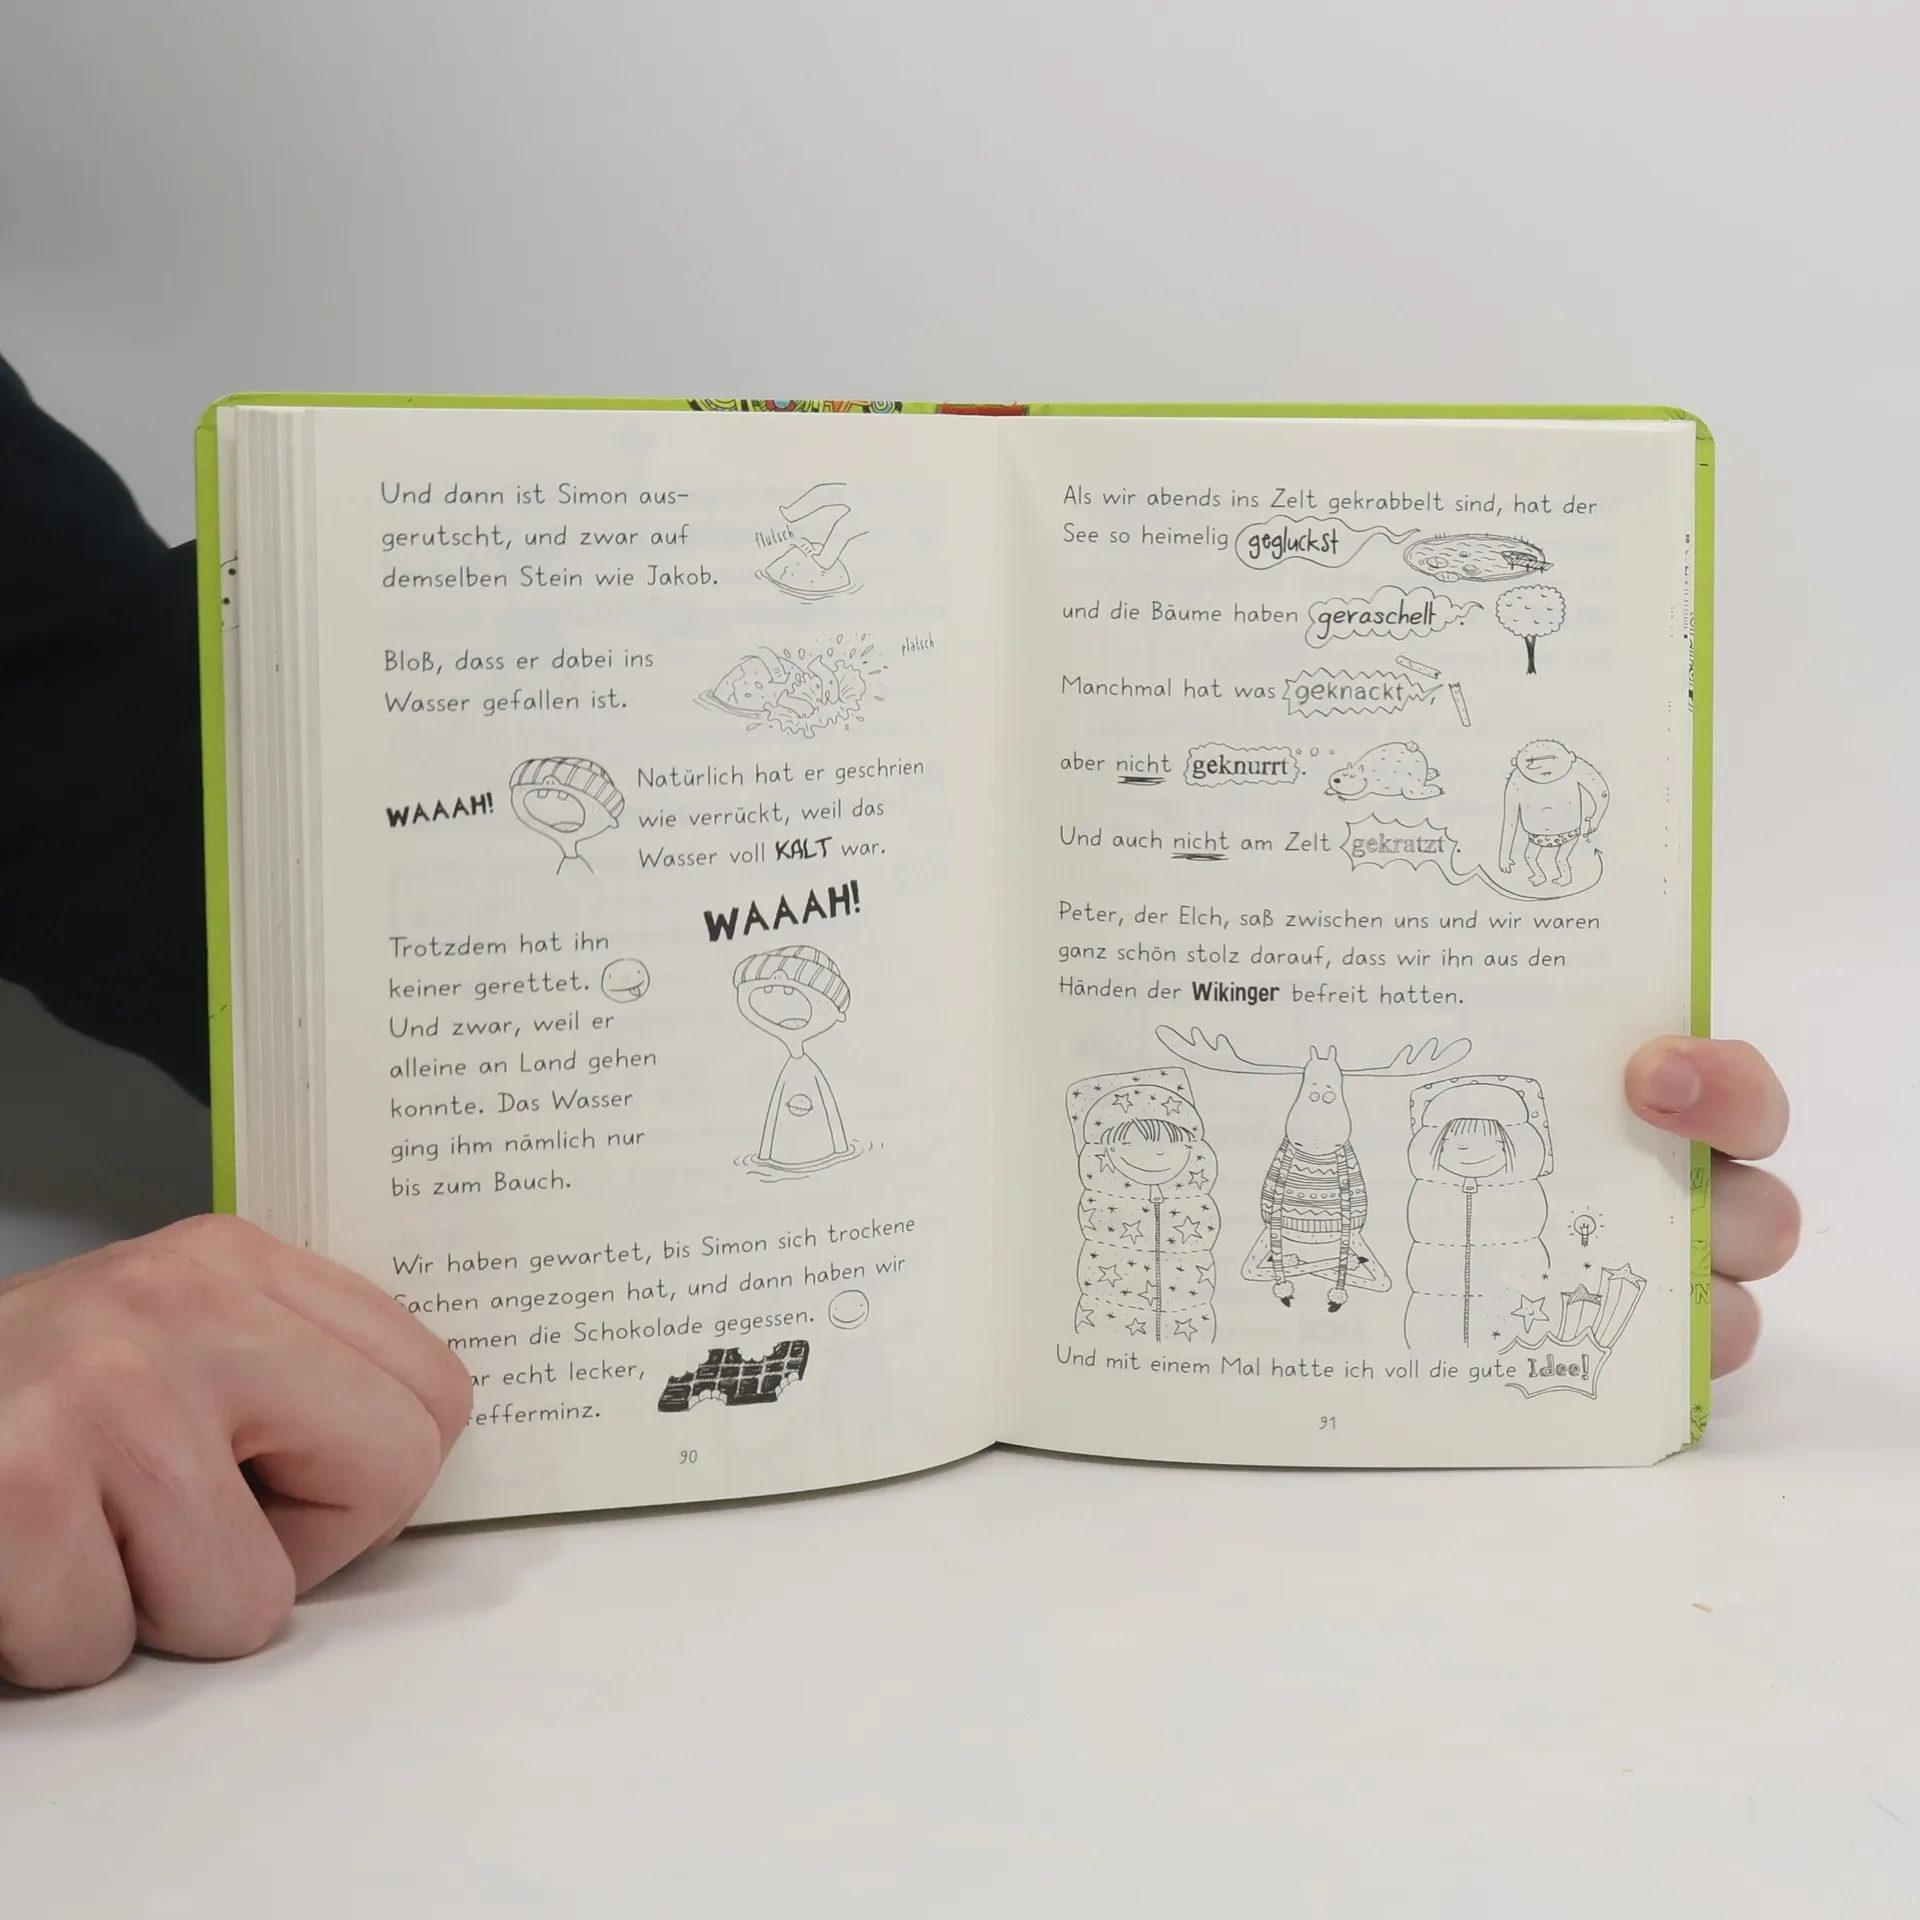 Und dann ist Simon aus-
gerutscht, und zwar auf
demselben Stein wie Jakob.
flutsch
Bloß, dass er dabei ins
Wasser gefallen ist.
platsch
WAAAH!
Natürlich hat er geschrien
wie verrückt, weil das
Wasser voll KALT war.
WAAAH!
Trotzdem hat ihn
keiner gerettet.
Und zwar, weil er
alleine an Land gehen
konnte. Das Wasser
ging ihm nämlich nur
bis zum Bauch.
Wir haben gewartet, bis Simon sich trockene
Sachen angezogen hat, und dann haben wir
mmen die Schokolade gegessen.
ar echt lecker,
efferminz.
90
Als wir abends ins Zelt gekrabbelt sind, hat der
See so heimelig gegluckst
und die Bäume haben geraschelt.
Manchmal hat was geknackt,
aber nicht geknurrt.
Und auch nicht am Zelt gekratzt.
Peter, der Elch, saß zwischen uns und wir waren
ganz schön stolz darauf, dass wir ihn aus den
Händen der Wikinger befreit hatten.
Und mit einem Mal hatte ich voll die gute Idee!
91